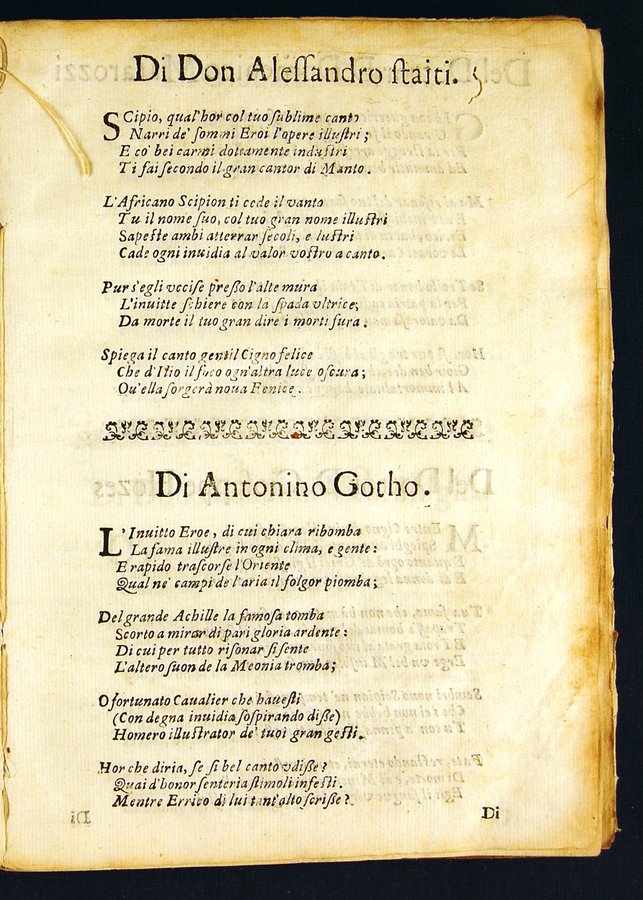 Di Don Alessandro staiti.
SCipio, qual'hor col tuo sublime canto
Narri de' sommi Eroi l'opere illustri;
E co' bei carmi dottamente industri
Ti fai secondo il gran cantor di Manto.
L'Africano Scipion ti cede il vanto
Tu il nome suo, col tuo gran nome illustri
Sapeste ambi atterrar secoli, e lustri
Cade ogni inuidia al valor vostro a canto.
Pur s'egli vccise presso l'alte mura
L'inuitte schiere con la spada vltrice;
Da morte il tuo gran dire i morti fura.
Spiega il canto gentil Cigno felice
Che d'Ilio il foco ogn'altra luce oscura;
Ou'ella sorgerà noua Fenice.
Di Antonino Gotho.
L'Inuitto Eroe, di cui chiara ribomba
La fama illustre in ogni clima, e gente:
E rapido trascorse l'Oriente
Qual ne' campi de l'aria il folgor piomba;
Del grande Achille la famosa tomba
Scorto a mirar di pari gloria ardente:
Di cui per tutto risonar si sente
L'altero suon de la Meonia tromba;
O fortunato Caualier che hauesti
(Con degna inuidia sospirando disse)
Homero illustrator de' tuoi gran gesti.
Hor che diria, se si bel canto vdisse?
Quai d'honor senteria stimoli infesti.
Mentre Errico di lui tant'alto scrisse?
Di